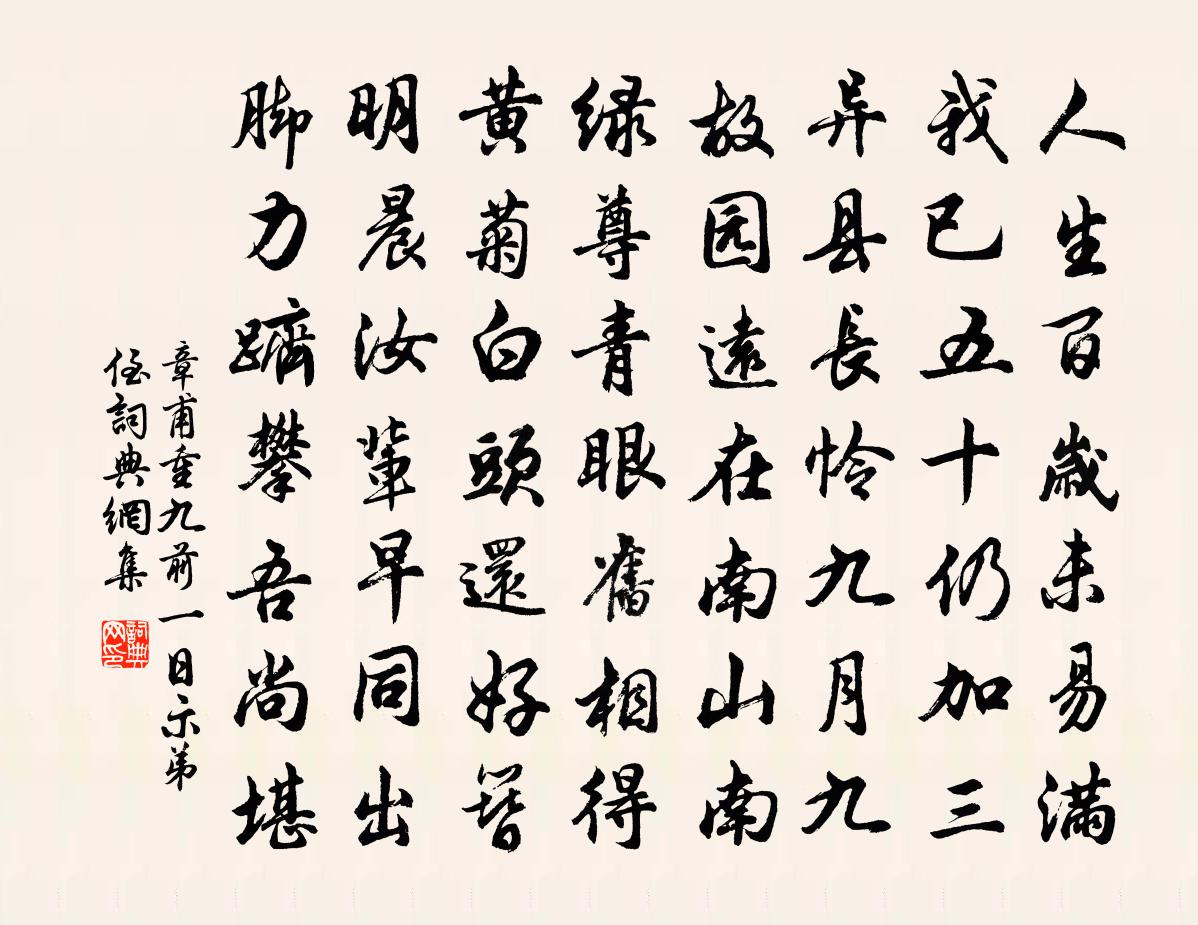 人生百歳未易满
我已五十仍加三
异县長怜九月九
故园遠在南山南
绿尊青眼舊相得
黄菊白頭還好簪
明晨汝輩早同出
脚力躋攀吾尚堪
章甫重九前一日示弟
侄詞典網集
詞典
网印